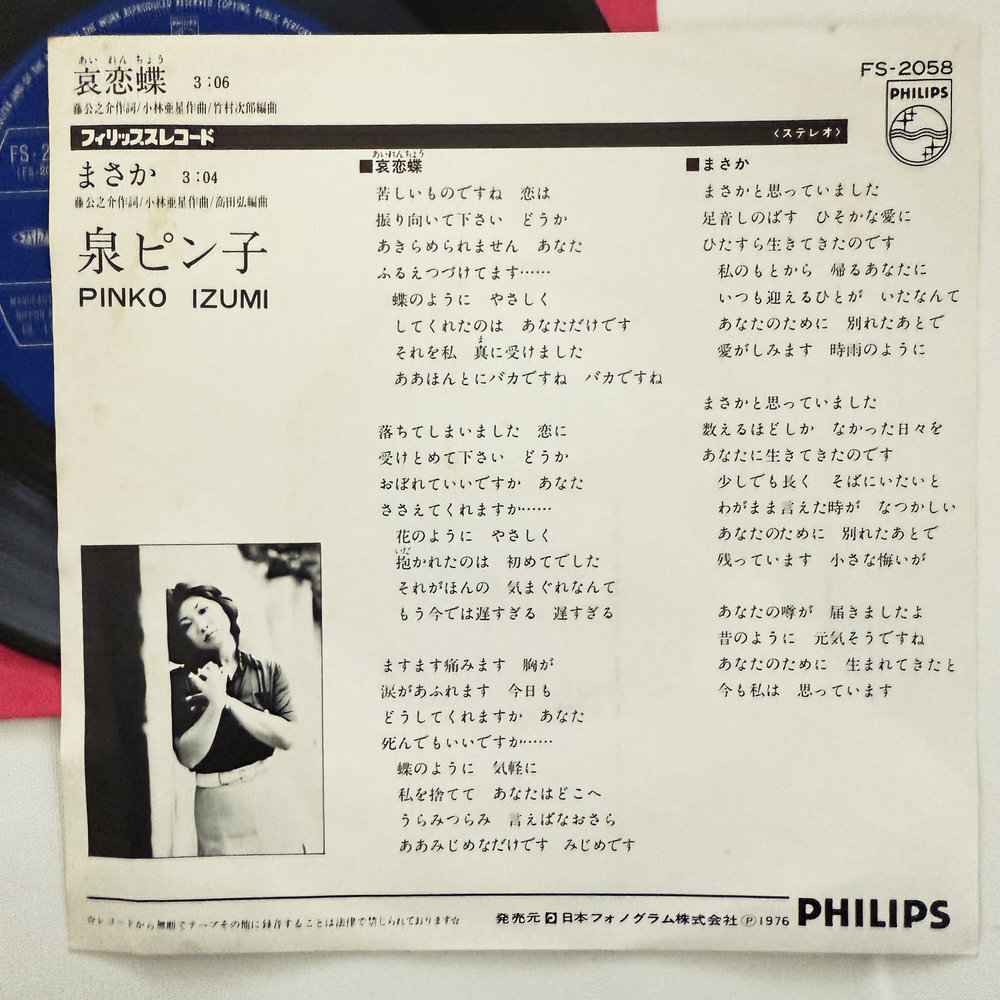 THE WORK REPRODUCED RESERVED COPYING, PUBLIC PERFOR
PHILIPS
FS-2
哀恋蝶 3:06
あい れん ちょう
藤公之介作詞/小林亜星作曲/竹村次郎編曲
フィリップスレコード
〈ステレオ〉
FS-2058
PHILIPS
まさか 3:04
藤公之介作詞/小林亜星作曲/高田弘編曲
泉ピン子
PINKO IZUMI
あいれんちょう
■哀恋蝶
苦しいものですね 恋は
振り向いて下さい どうか
あきらめられません あなた
ふるえつづけてます……
蝶のように やさしく
してくれたのは あなただけです
ま
それを私 真に受けました
ああほんとにバカですね バカですね
落ちてしまいました 恋に
受けとめて下さい どうか
おぼれていいですか あなた
ささえてくれますか……
花のように やさしく
いだ
抱かれたのは 初めてでした
それがほんの 気まぐれなんて
もう今では遅すぎる 遅すぎる
ますます痛みます 胸が
涙があふれます 今日も
どうしてくれますか あなた
死んでもいいですか……
蝶のように 気軽に
私を捨てて あなたはどこへ
うらみつらみ 言えばなおさら
ああみじめなだけです みじめです
■まさか
まさかと思っていました
足音しのばす ひそかな愛に
ひたすら生きてきたのです
私のもとから 帰るあなたに
いつも迎えるひとが いたなんて
あなたのために 別れたあとで
愛がしみます 時雨のように
まさかと思っていました
数えるほどしか なかった日々を
あなたに生きてきたのです
少しでも長く そばにいたいと
わがまま言えた時が なつかしい
あなたのために 別れたあとで
残っています 小さな悔いが
あなたの噂が 届きましたよ
昔のように 元気そうですね
あなたのために 生まれてきたと
今も私は 思っています
☆レコードから無断でテープその他に録音することは法律で禁じられております☆
発売元 日本フォノグラム株式会社Ⓟ1976
PHILIPS